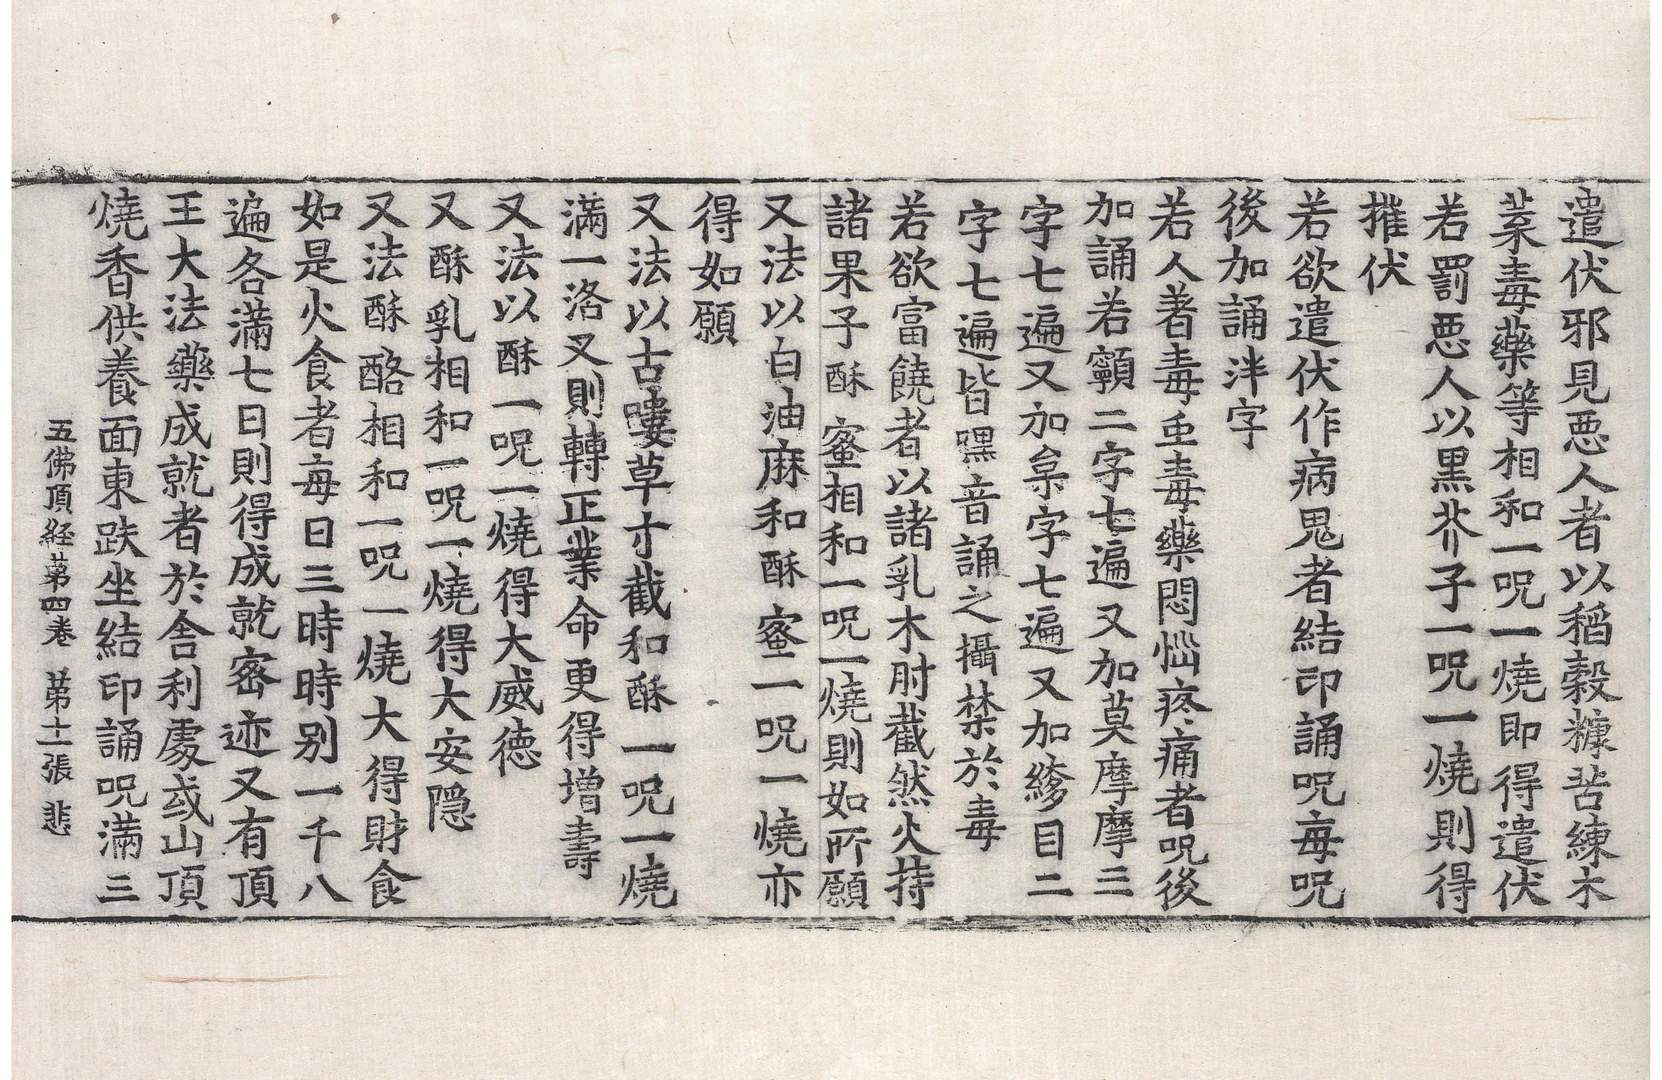 遣伏邪見惡人者以稻穀糠苦練木
菜毒藥等相和一呪一燒即得遣伏
若罰惡人以黑芥子一呪一燒則得
摧伏
若欲遣伏作病鬼者結印誦呪每呪
後加誦泮字
若人著毒重毒藥悶惱疼痛者呪後
加誦若顙二字七遍又加莫摩摩三
字七遍又加枲字七遍又加縿目二
字七遍皆嘿音誦之攝禁於毒
若欲富饒者以諸乳木肘截然火持
諸果子酥蜜相和一呪一燒則如所願
又法以白油麻和酥蜜一呪一燒亦
得如願
又法以古嘍草寸截和酥一呪一燒
滿一洛叉則轉正業命更得增壽
又法以酥一呪一燒得大威德
又酥乳相和一呪一燒得大安隱
又法酥酪相和一呪一燒大得財食
如是火食者每日三時時別一千八
遍各滿七日則得成就密迹又有頂
王大法藥成就者於舍利處或山頂
燒香供養面東趺坐結印誦呪滿三
五佛頂経苐四卷 苐十二張 悲